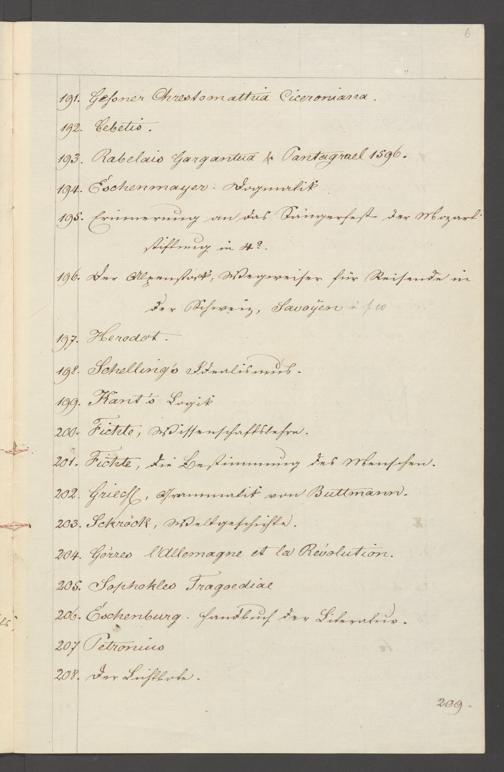 6
191. Geßner Chrestomathia Ciceroniana.
192. Cebetis.
193. Rabelais Gargantua & Pantagruel 1596.
194. Eschenmayer: Dogmatik
195. Erinnerung an das Sängerfest der Mozart-
stiftung in 4º.
196. Der Alpenstock, Wegweiser für Reisende in
der Schweiz, Savoÿen
197. Herodot.
198. Schelling's Idealismus.
199. Kant's Logik
200. Fichte, Wissenschaftslehre.
201. Fichte, die Bestimmung des Menschen.
202. Griech, Grammatik von Buttmann.
203. Schröck, Weltgeschichte.
204. Görres l'Allemagne et la Révolution.
205. Sophokles Tragoediae
206. Eschenburg. Handbuch der Literatur.
207 Petronius
208. Der Lichtbote.
209.